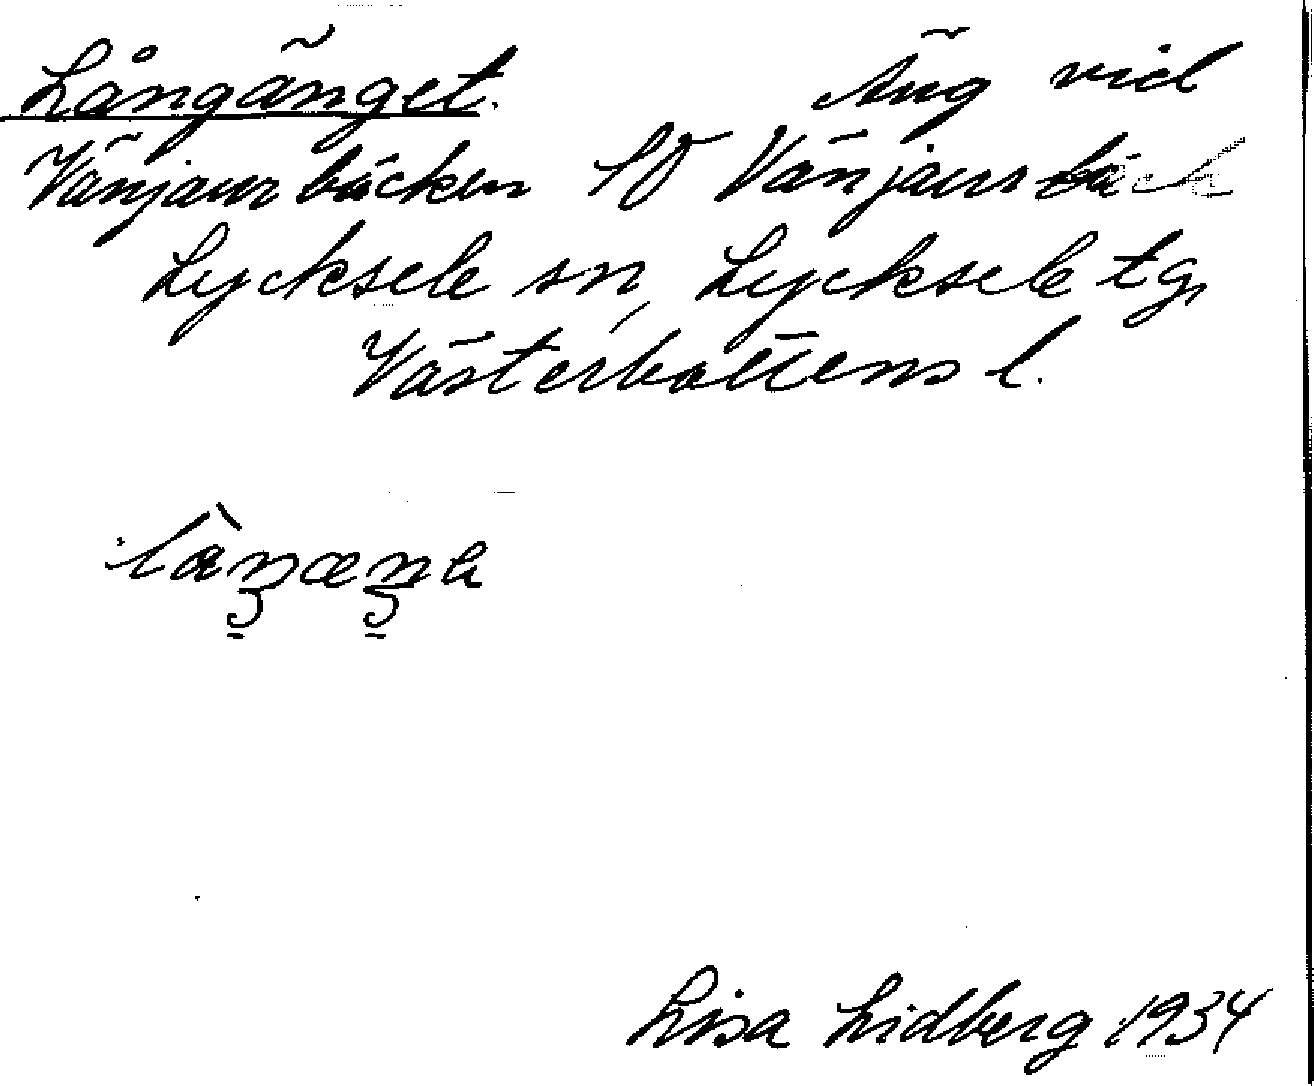 Långänget. Äng vid
Vänjaurbäcken SV Vänjaursbäck
Lycksele sn, Lycksele tg,
Västerbottens l.
Lisa Lidberg 1934